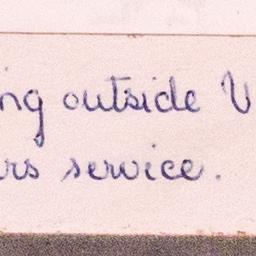 ng outside
rs service.